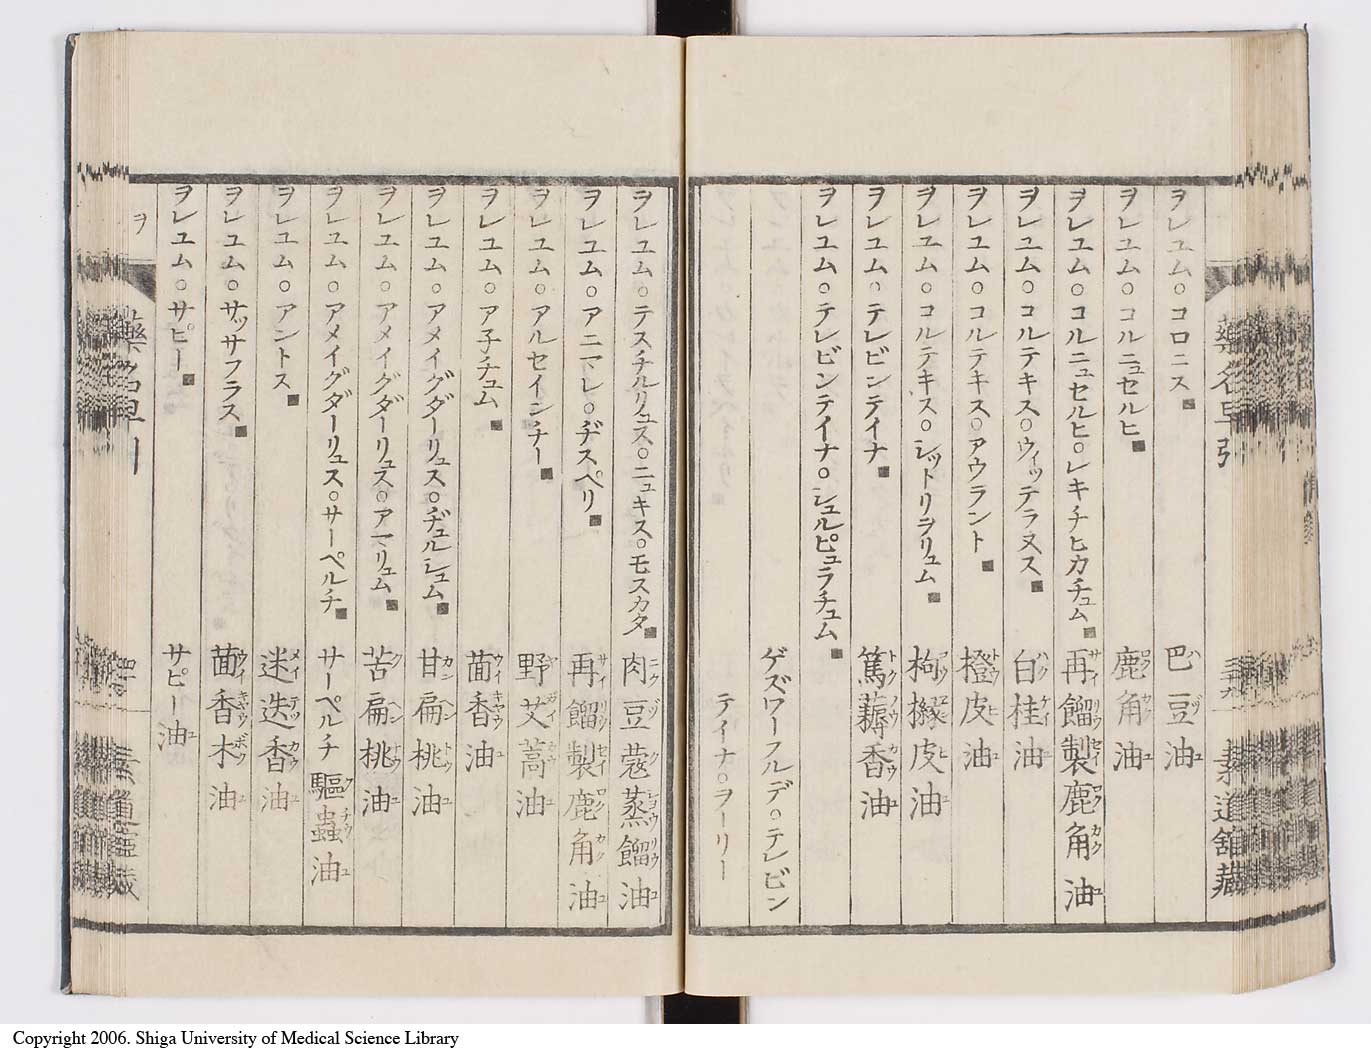 藥名早引
三十九
ヲレユム○コロニス■ 巴豆油
ヲレユム○コルニュセルヒ■ 鹿角油
ヲレユム○コルニュセルヒ○レキチヒカチュム■ 再餾製鹿角油
ヲレユム○コルテキス○ウィッテラヌス■ 白桂油
ヲレユム○コルテキス○アウラント■ 橙皮油
ヲレユム○コルテキス○シットリヲリュム■ 枸櫞皮油
ヲレユム○テレビンテイナ■ 篤耨香油
ヲレユム○テレビンテイナ○シュルピュラチュム■
ゲズワーフルデ○テレビン
テイナ○ヲーリー
ヲレユム○テスチルリュス○ニュキス○モスカタ■ 肉豆蔲蒸餾油
ヲレユム○アニマレ○ヂスペリ■ 再餾製鹿角油
ヲレユム○アルセインチー■ 野艾蒿油
ヲレユム○ア子チュム■ 茴香油
ヲレユム○アメイグダーリュス○ヂュルシュム■ 甘扁桃油
ヲレユム○アメイグダーリュス○アマリュム■ 苦扁桃油
ヲレユム○アメイグダーリュス○サーペルチ■ サーペルチ驅蟲油
ヲレユム○アントス■ 迷迭香油
ヲレユム○サッサフラス■ 茴香木油
ヲレユム○サピー■ サピー油
ヲ
藥名早引
Copyright 2006. Shiga University of Medical Science Library